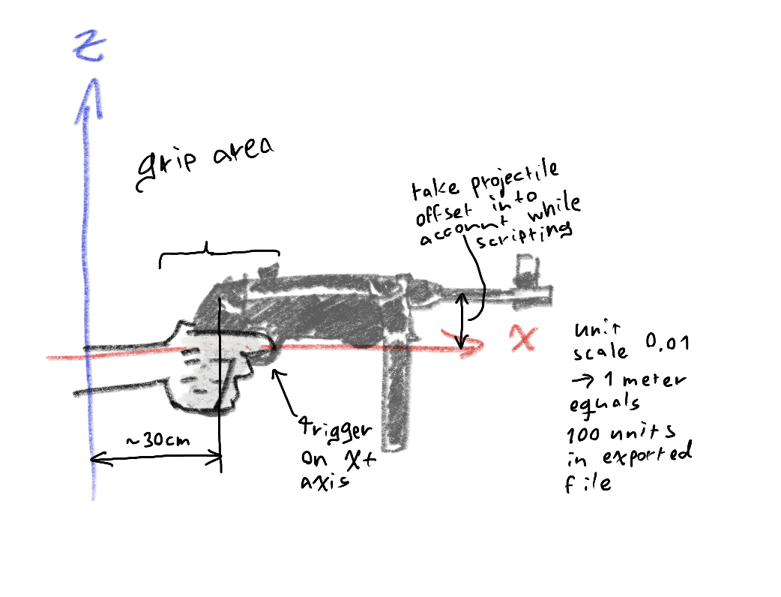 Z
grip area
take projectile
offset into
account while
scripting
X
unit
scale 0,01
→ 1 meter
equals
100 units
in exported
file
~30cm
trigger
on X+
axis